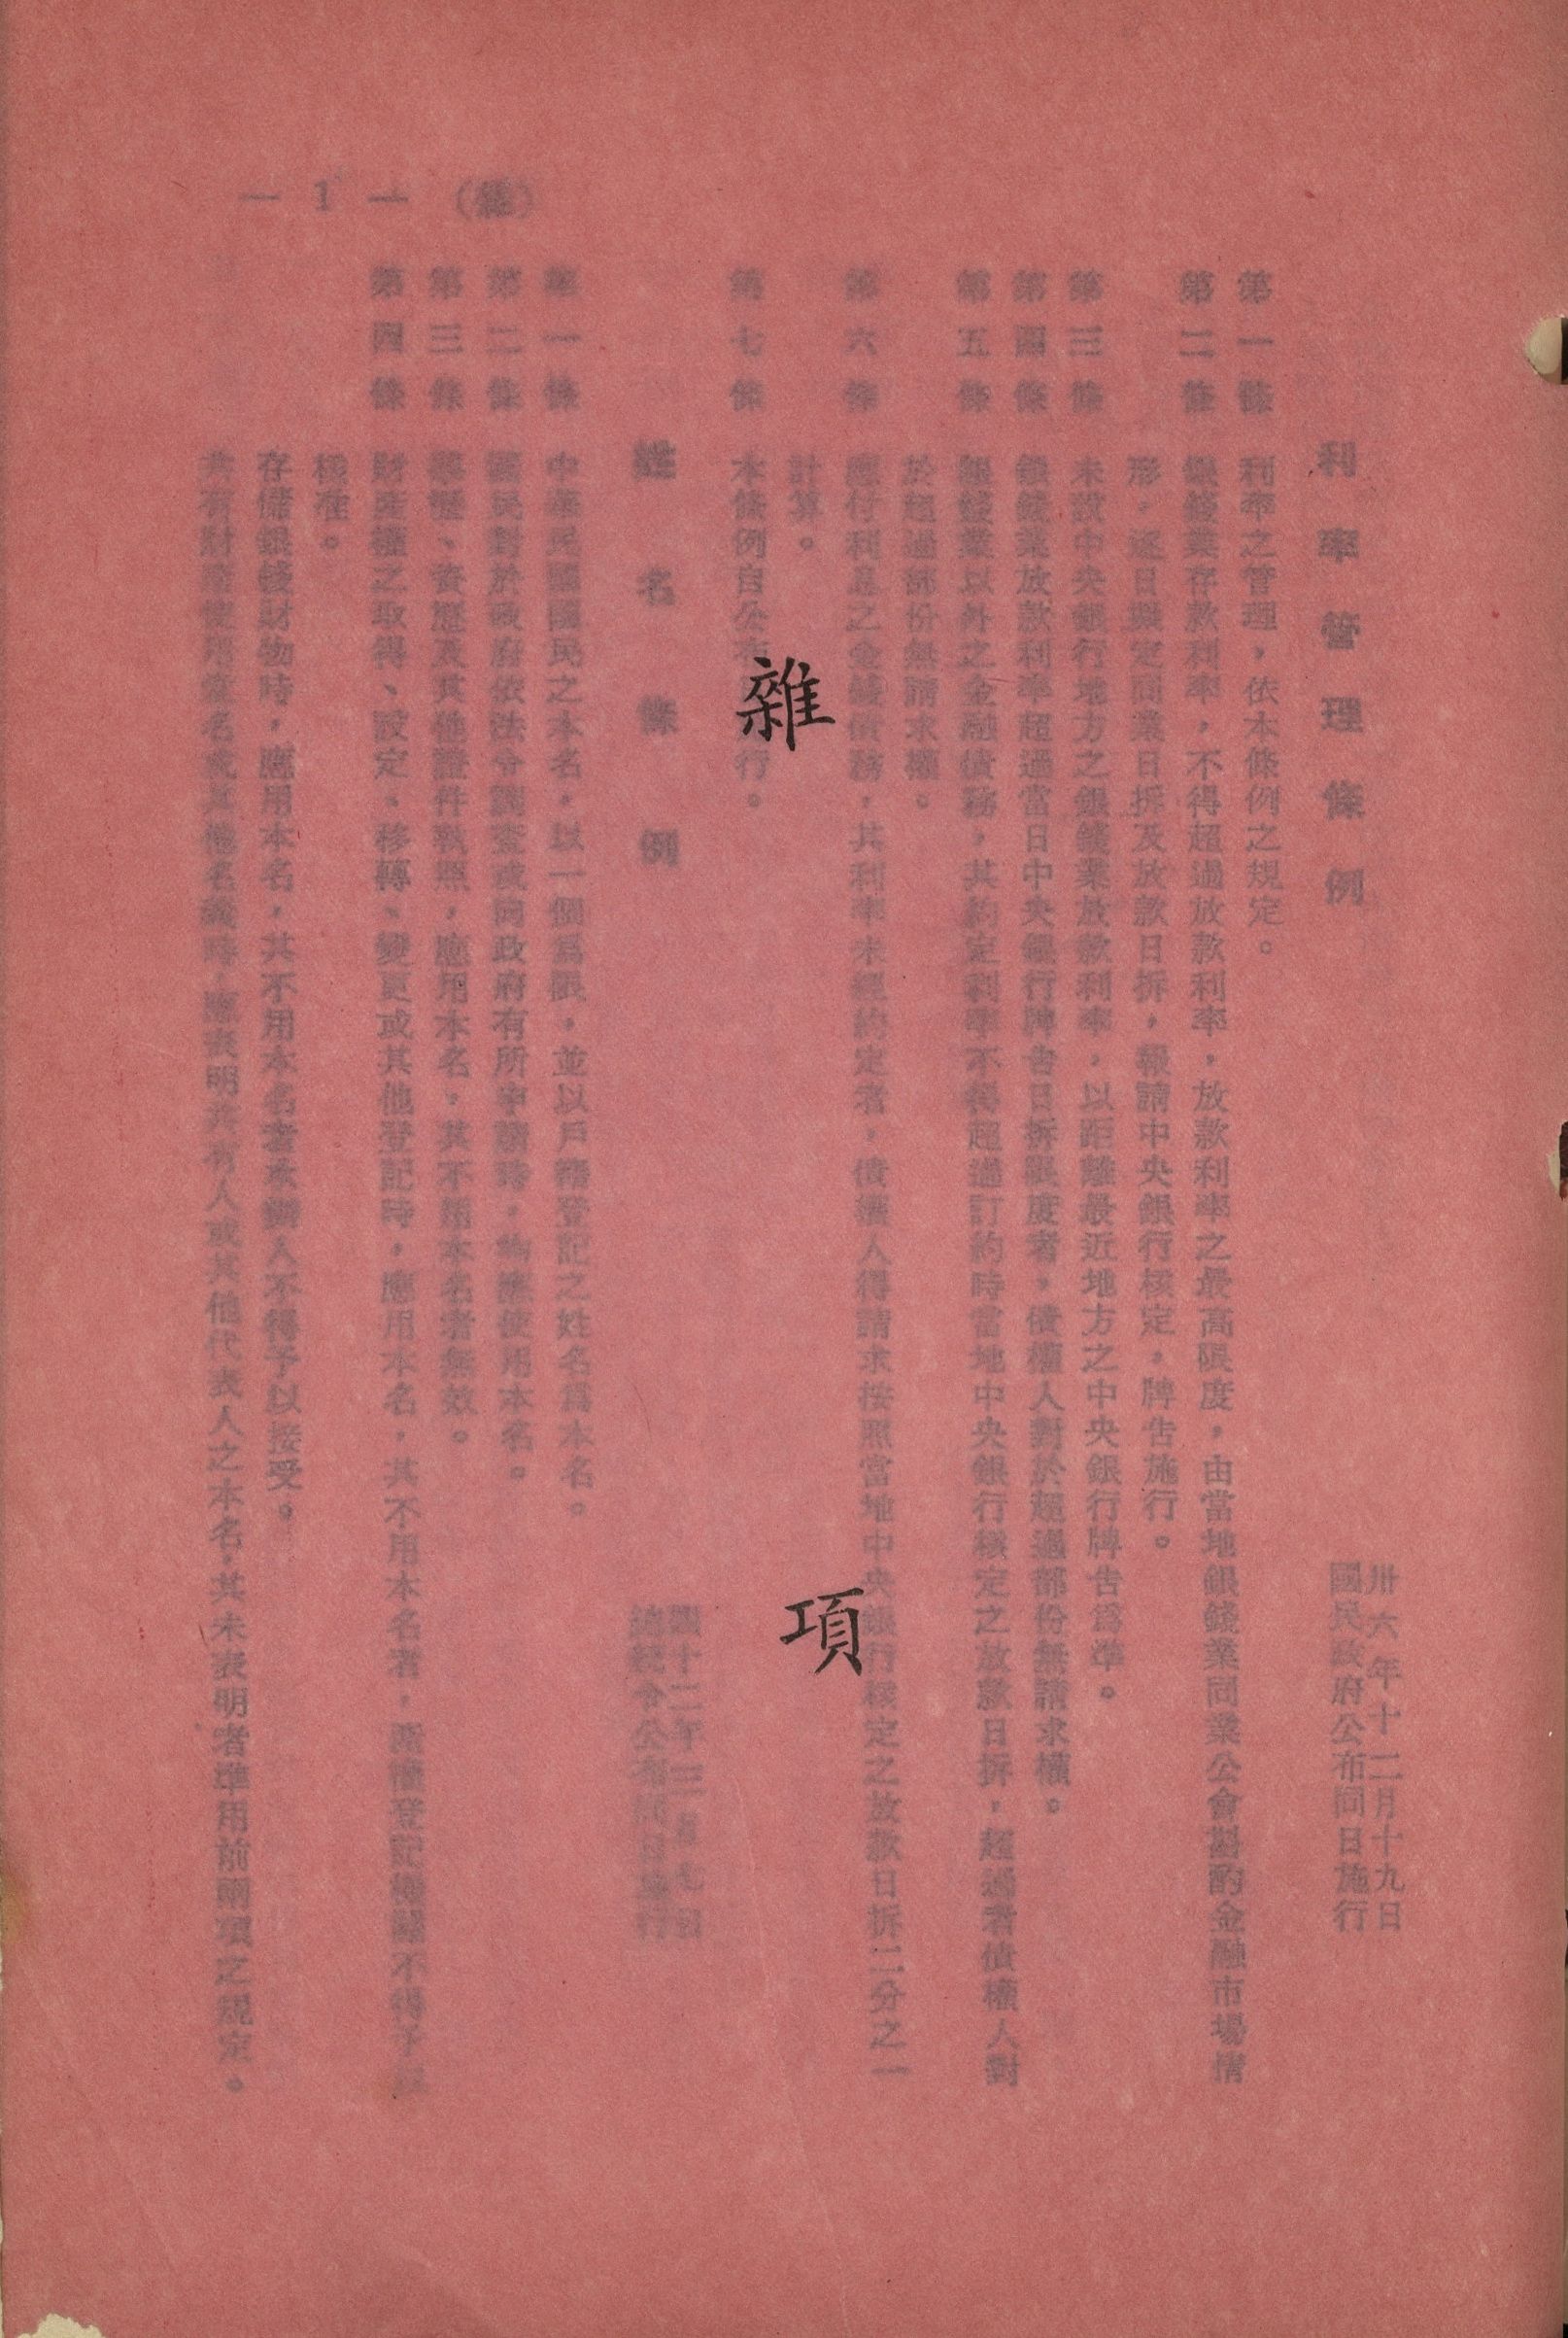 雜項
(雜) — 1 —
利率管理條例
卅六年十二月十九日
國民政府公布同日施行
第一條 利率之管理,依本條例之規定。
第二條 銀錢業存款利率,不得超過放款利率,放款利率之最高限度,由當地銀錢業同業公會斟酌金融市場情
形,逐日擬定同業日拆及放款日拆,報請中央銀行核定,牌告施行。
第三條 未設中央銀行地方之銀錢業放款利率,以距離最近地方之中央銀行牌告為準。
第四條 銀錢業放款利率超過當日中央銀行牌告日拆限度者,債權人對於超過部份無請求權。
第五條 銀錢業以外之金融債務,其約定利率不得超過訂約時當地中央銀行核定之放款日拆,超過者債權人對
於超過部份無請求權。
第六條 應付利息之金錢債務,其利率未經約定者,債權人得請求按照當地中央銀行核定之放款日拆二分之一
計算。
第七條 本條例自公布 行。
姓名條例
四十二年三月七日
總統令公布同日施行
第一條 中華民國國民之本名,以一個為限,並以戶籍登記之姓名為本名。
第二條 國民對於政府依法令調查或向政府有所申請時,均應使用本名。
第三條 學歷、資歷及其他證件執照,應用本名,其不用本名者無效。
第四條 財產權之取得、設定、移轉、變更或其他登記時,應用本名,其不用本名者, 登記機關不得予以
核准。
存儲銀錢財物時,應用本名,其不用本名者承辦人不得予以接受。
共有財產使用堂名或其他名義時,應表明共有人或其他代表人之本名,其未表明者準用前兩項之規定。